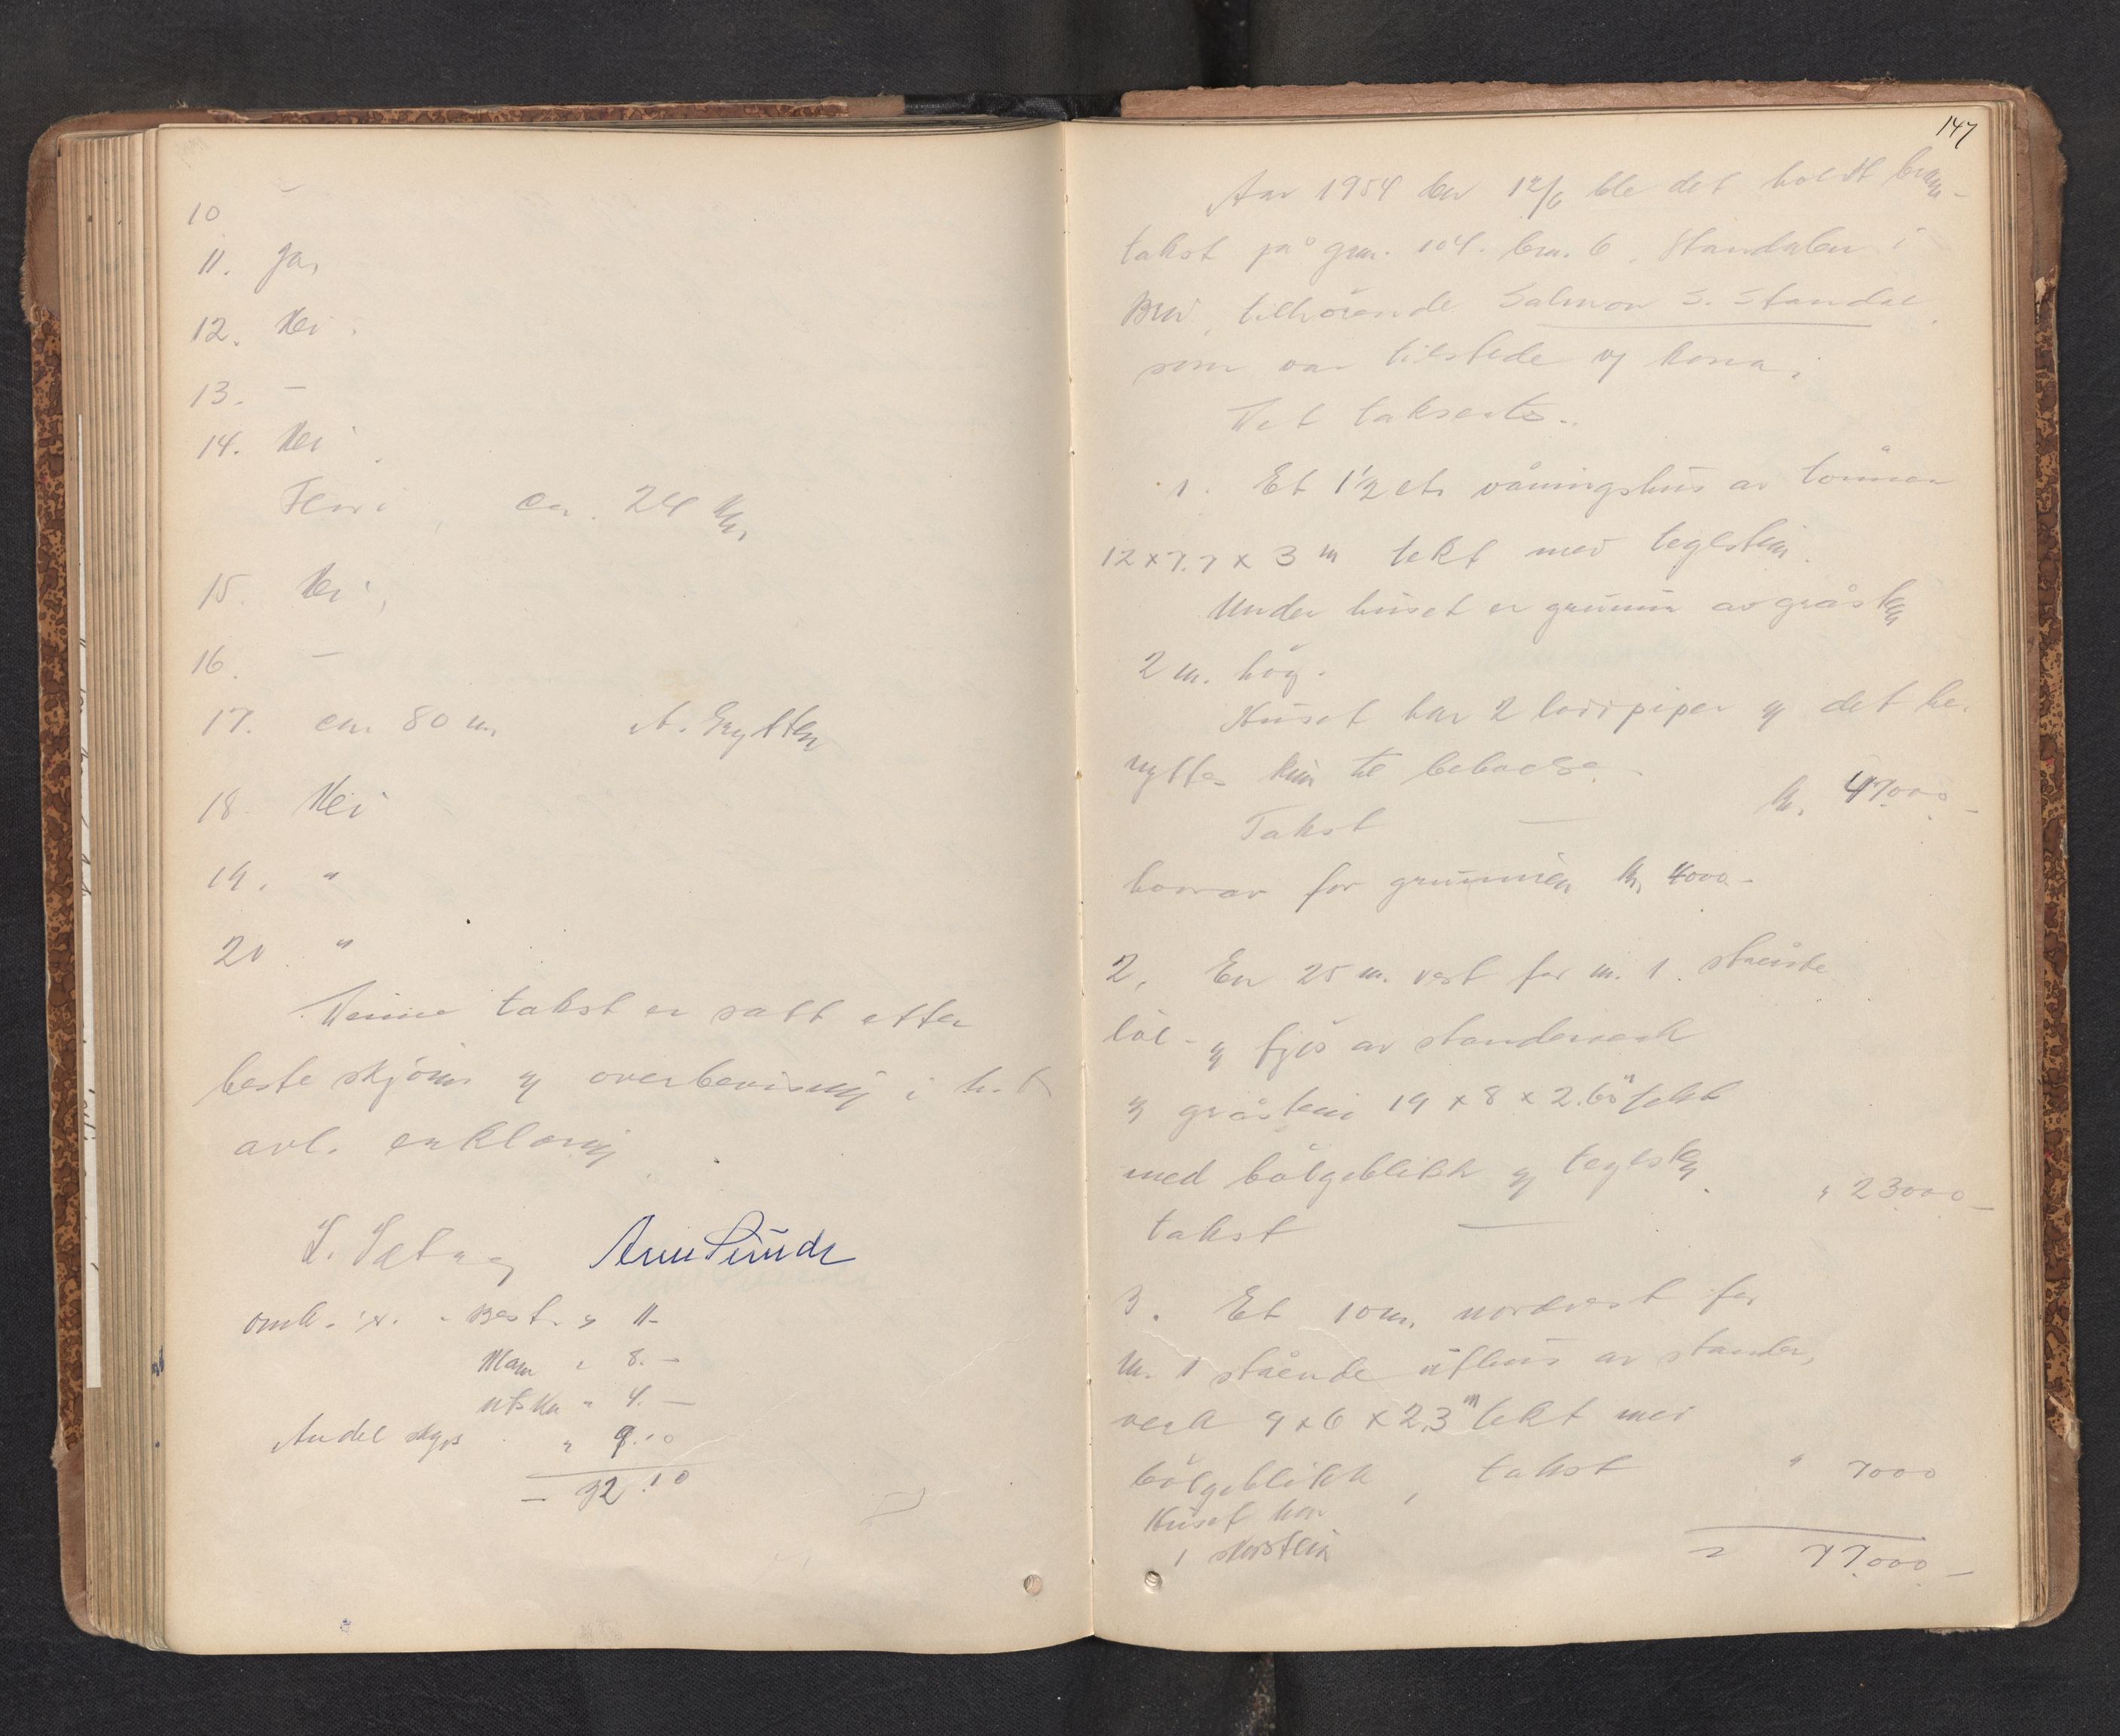 10 –
11. Ja,
12. Nei.
13. –
14. Nei.
ca. 24 Km,
15. Nei,
16. –
17. ca. 80 m. A. Grytten
18. Nei
19. "
20 "
Denne takst er satt etter
beste skjönn og overbevisning i h. t.
avl. erklæring
Arne Sunde
Best. " 11-
Mann " 8.–
utskr. " 4.–
Andel skyss " 9.10
– 32.10
147
Aar 1954 den 12/6 ble det holdt brann-
takst på gnr. 104. bnr. 6, Standalen i
tilhörende Salmon S. Standal
som var tilstede og kona.
Det takserte.
1. Et 1½ ets våningshus av tömmer
12 x 7.7 x 3 m tekt med teglstein.
Under huset er grunnmur av gråstein
2 m. hög.
Huset har 2 lovvpiper og det be-
nyttes kun til beboelse.
Takst – kr. 47.000 –
hvorav for grunnmuren kr. 4000.–
2. En 25 m. vest for nr. 1. stående
löe- og fjös av standerverk
og gråstein 19 x 8 x 2.60 m tekt
med bölgeblikk og teglstein.
takst – " 23000 –
3. Et 10 m. nordvest for
nr. 1 stående uthus av stander-
verk 9 x 6 x 2,3 m tekt med
bölgeblikk, takst " 7000
Huset har
1 skorstein
= 77.000 –